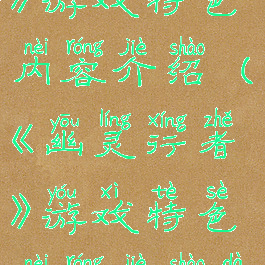 》游戏特色
nèi róng jiè shào
内容介绍（
yōu líng xíng zhě
《幽灵行者
yóu xì tè sè
》游戏特色
nèi róng jiè shào dà